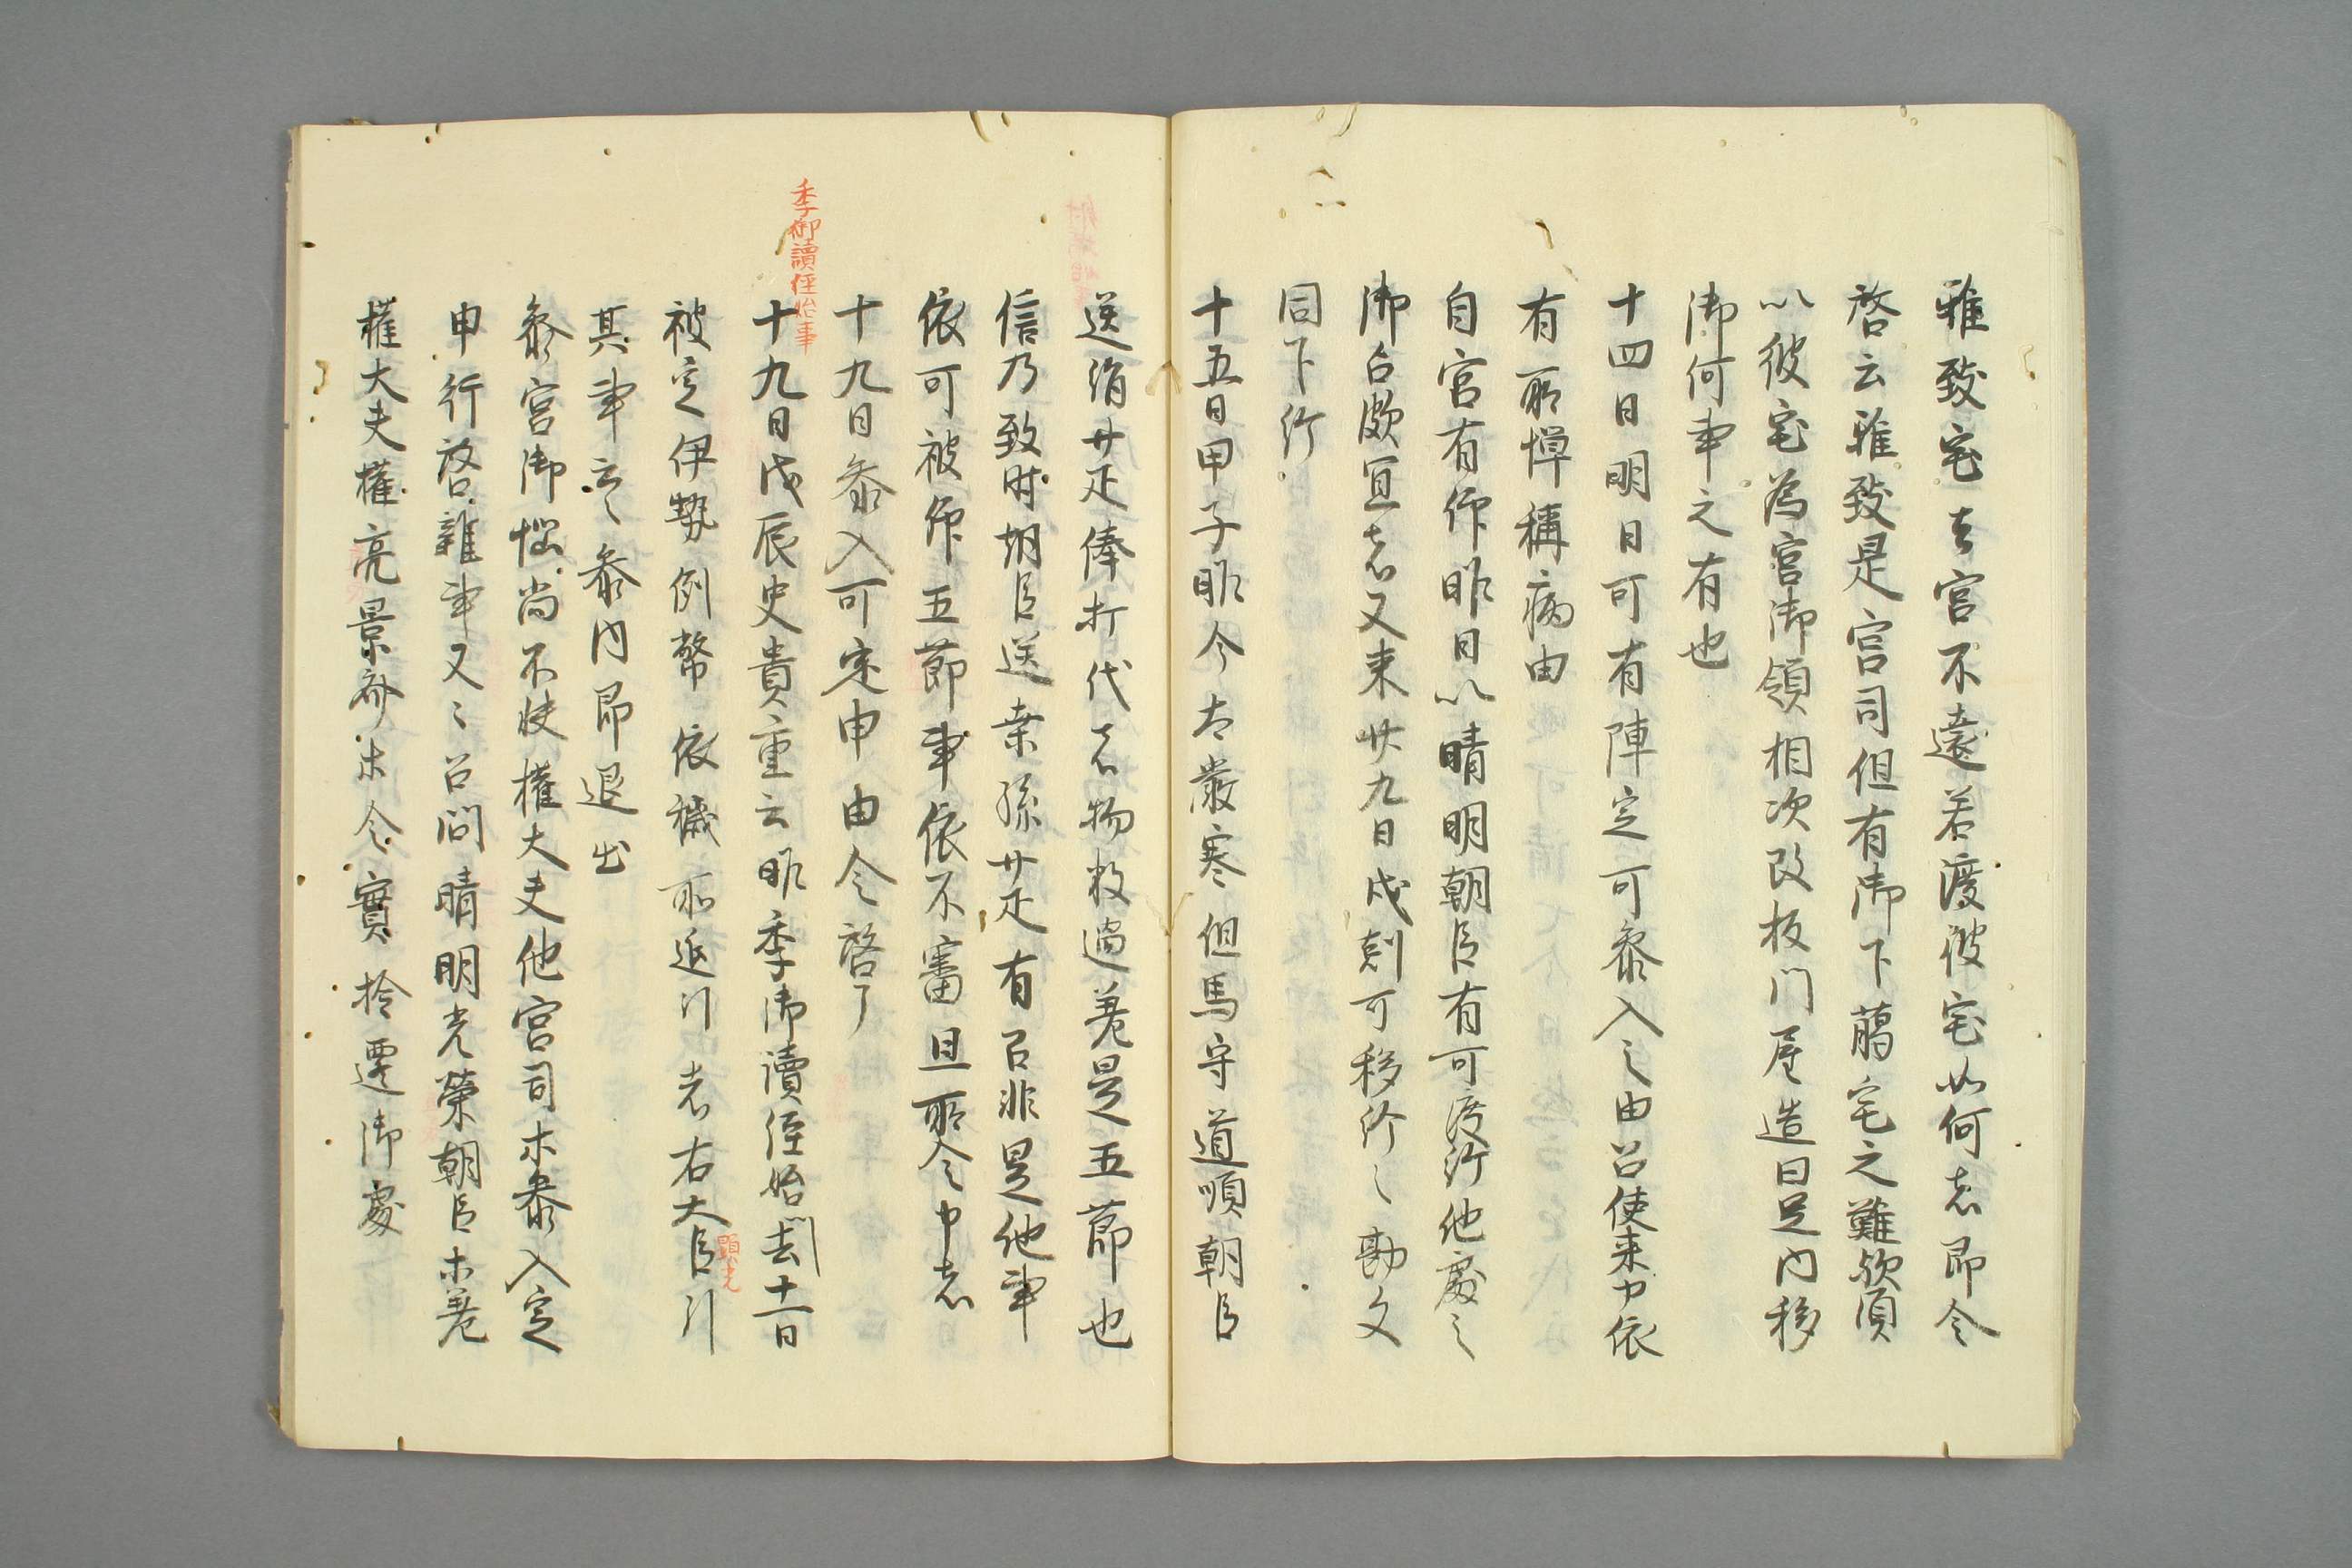 雅致宅去宮不遠若渡彼宅如何者即令
啓云雅致是宮司但有御下﨟宅之難欤須
以彼宅為宮御領相次改板門屋造日是内移
御何事之有也
十四日明日可有陣定可参入之由召使来申依
有所憚稱病由
自宮有仰昨日以晴明朝臣有可渡給他處之
御占頗宜者又来廿九日戌剋可移給之勘文
同下給
十五日甲子昨今太厳寒但馬守道順朝臣
送絹廿疋俸打代之物数過差是五節也
信乃致時朝臣送桒絲廿疋有召非是他事
依可被仰五節事依不審且所令申者
十九日参入可定申由令啓了
季御讀経始事
十九日戊辰史貴重云昨季御讀経始去十一日
被定伊勢例幣依穢所延引者右大臣行
顕光
其事云々参内即退出
参宮御悩尚不快權大夫他宮司ホ参入定
申行啓雜事又々召問晴明光榮朝臣ホ差
權大夫權亮景齊ホ令實撿遷御處